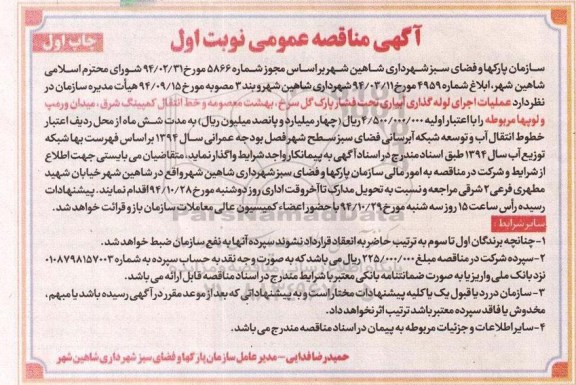 آگهی مناقصه عمومی نوبت اول
چاپ اول
سازمان پارکها و فضای سبز شهرداری شاهین شهر بر اساس مجوز شماره ۵۸۶۶ مورخ ۹۴/۰۲/۳۱ شورای محترم اسلامی
شاهین شهر، ابلاغ شماره ۴۹۵۹ مورخ ۹۴/۰۲/۳۱ شهرداری شاهین شهر و بند ۳ مصوبه مورخ ۹۴/۰۹/۱۵ هیأت مدیره سازمان در
نظر دارد عملیات اجرای لوله گذاری آبیاری تحت فشار پارک گل سرخ، بهشت معصومه و خط انتقال کمپینگ شرق، میدان و رمپ
و لوپها مربوطه را با اعتبار اولیه ۴/۵۰۰/۰۰۰/۰۰۰ ریال (چهار میلیارد و پانصد میلیون ریال) به مدت شش ماه از محل ردیف اعتبار
خطوط انتقال آب و توسعه شبکه آبرسانی فضای سبز سطح شهر فصل بودجه عمرانی سال ۱۳۹۴ بر اساس فهرست بها شبکه
توزیع آب سال ۱۳۹۴ طبق اسناد مندرج در اسناد آگهی به پیمانکار واجد شرایط واگذار نماید، متقاضیان می بایستی جهت اطلاع
از شرایط و شرکت در مناقصه به امور مالی سازمان پارکها و فضای سبز شهرداری شاهین شهر واقع در شاهین شهر خیابان شهید
مطهری فرعی ۲ شرقی مراجعه و نسبت به تحویل مدارک تا آخر وقت اداری روز دوشنبه مورخ ۹۴/۱۰/۲۸ اقدام نمایند. پیشنهادات
رسیده رأس ساعت ۱۵ روز سه شنبه مورخ ۹۴/۱۰/۲۹ با حضور اعضاء کمیسیون عالی معاملات سازمان باز و قرائت خواهد شد.
سایر شرایط:
۱-چنانچه برندگان اول تا سوم به ترتیب حاضر به انعقاد قرارداد نشوند سپرده آنها به نفع سازمان ضبط خواهد شد.
۲-سپرده شرکت در مناقصه مبلغ ۲۲۵/۰۰۰/۰۰۰ ریال می باشد که به صورت وجه نقد به حساب سپرده به شماره ۰۱۰۸۷۹۸۱۵۷۰۰۳
نزد بانک ملی واریز یا به صورت ضمانتنامه بانکی معتبر با شرایط مندرج در اسناد مناقصه قابل ارائه می باشد.
۳-سازمان در رد یا قبول یک یا کلیه پیشنهادات مختار است و به پیشنهاداتی که بعد از موعد مقرر در آگهی رسیده باشد یا مبهم،
مخدوش یا فاقد سپرده معتبر باشد ترتیب اثر نخواهد داد.
۴-سایر اطلاعات و جزئیات مربوطه به پیمان در اسناد مناقصه مندرج می باشد.
حمیدرضا فدایی - مدیر عامل سازمان پارکها و فضای سبز شهرداری شاهین شهر
ParsNamadData